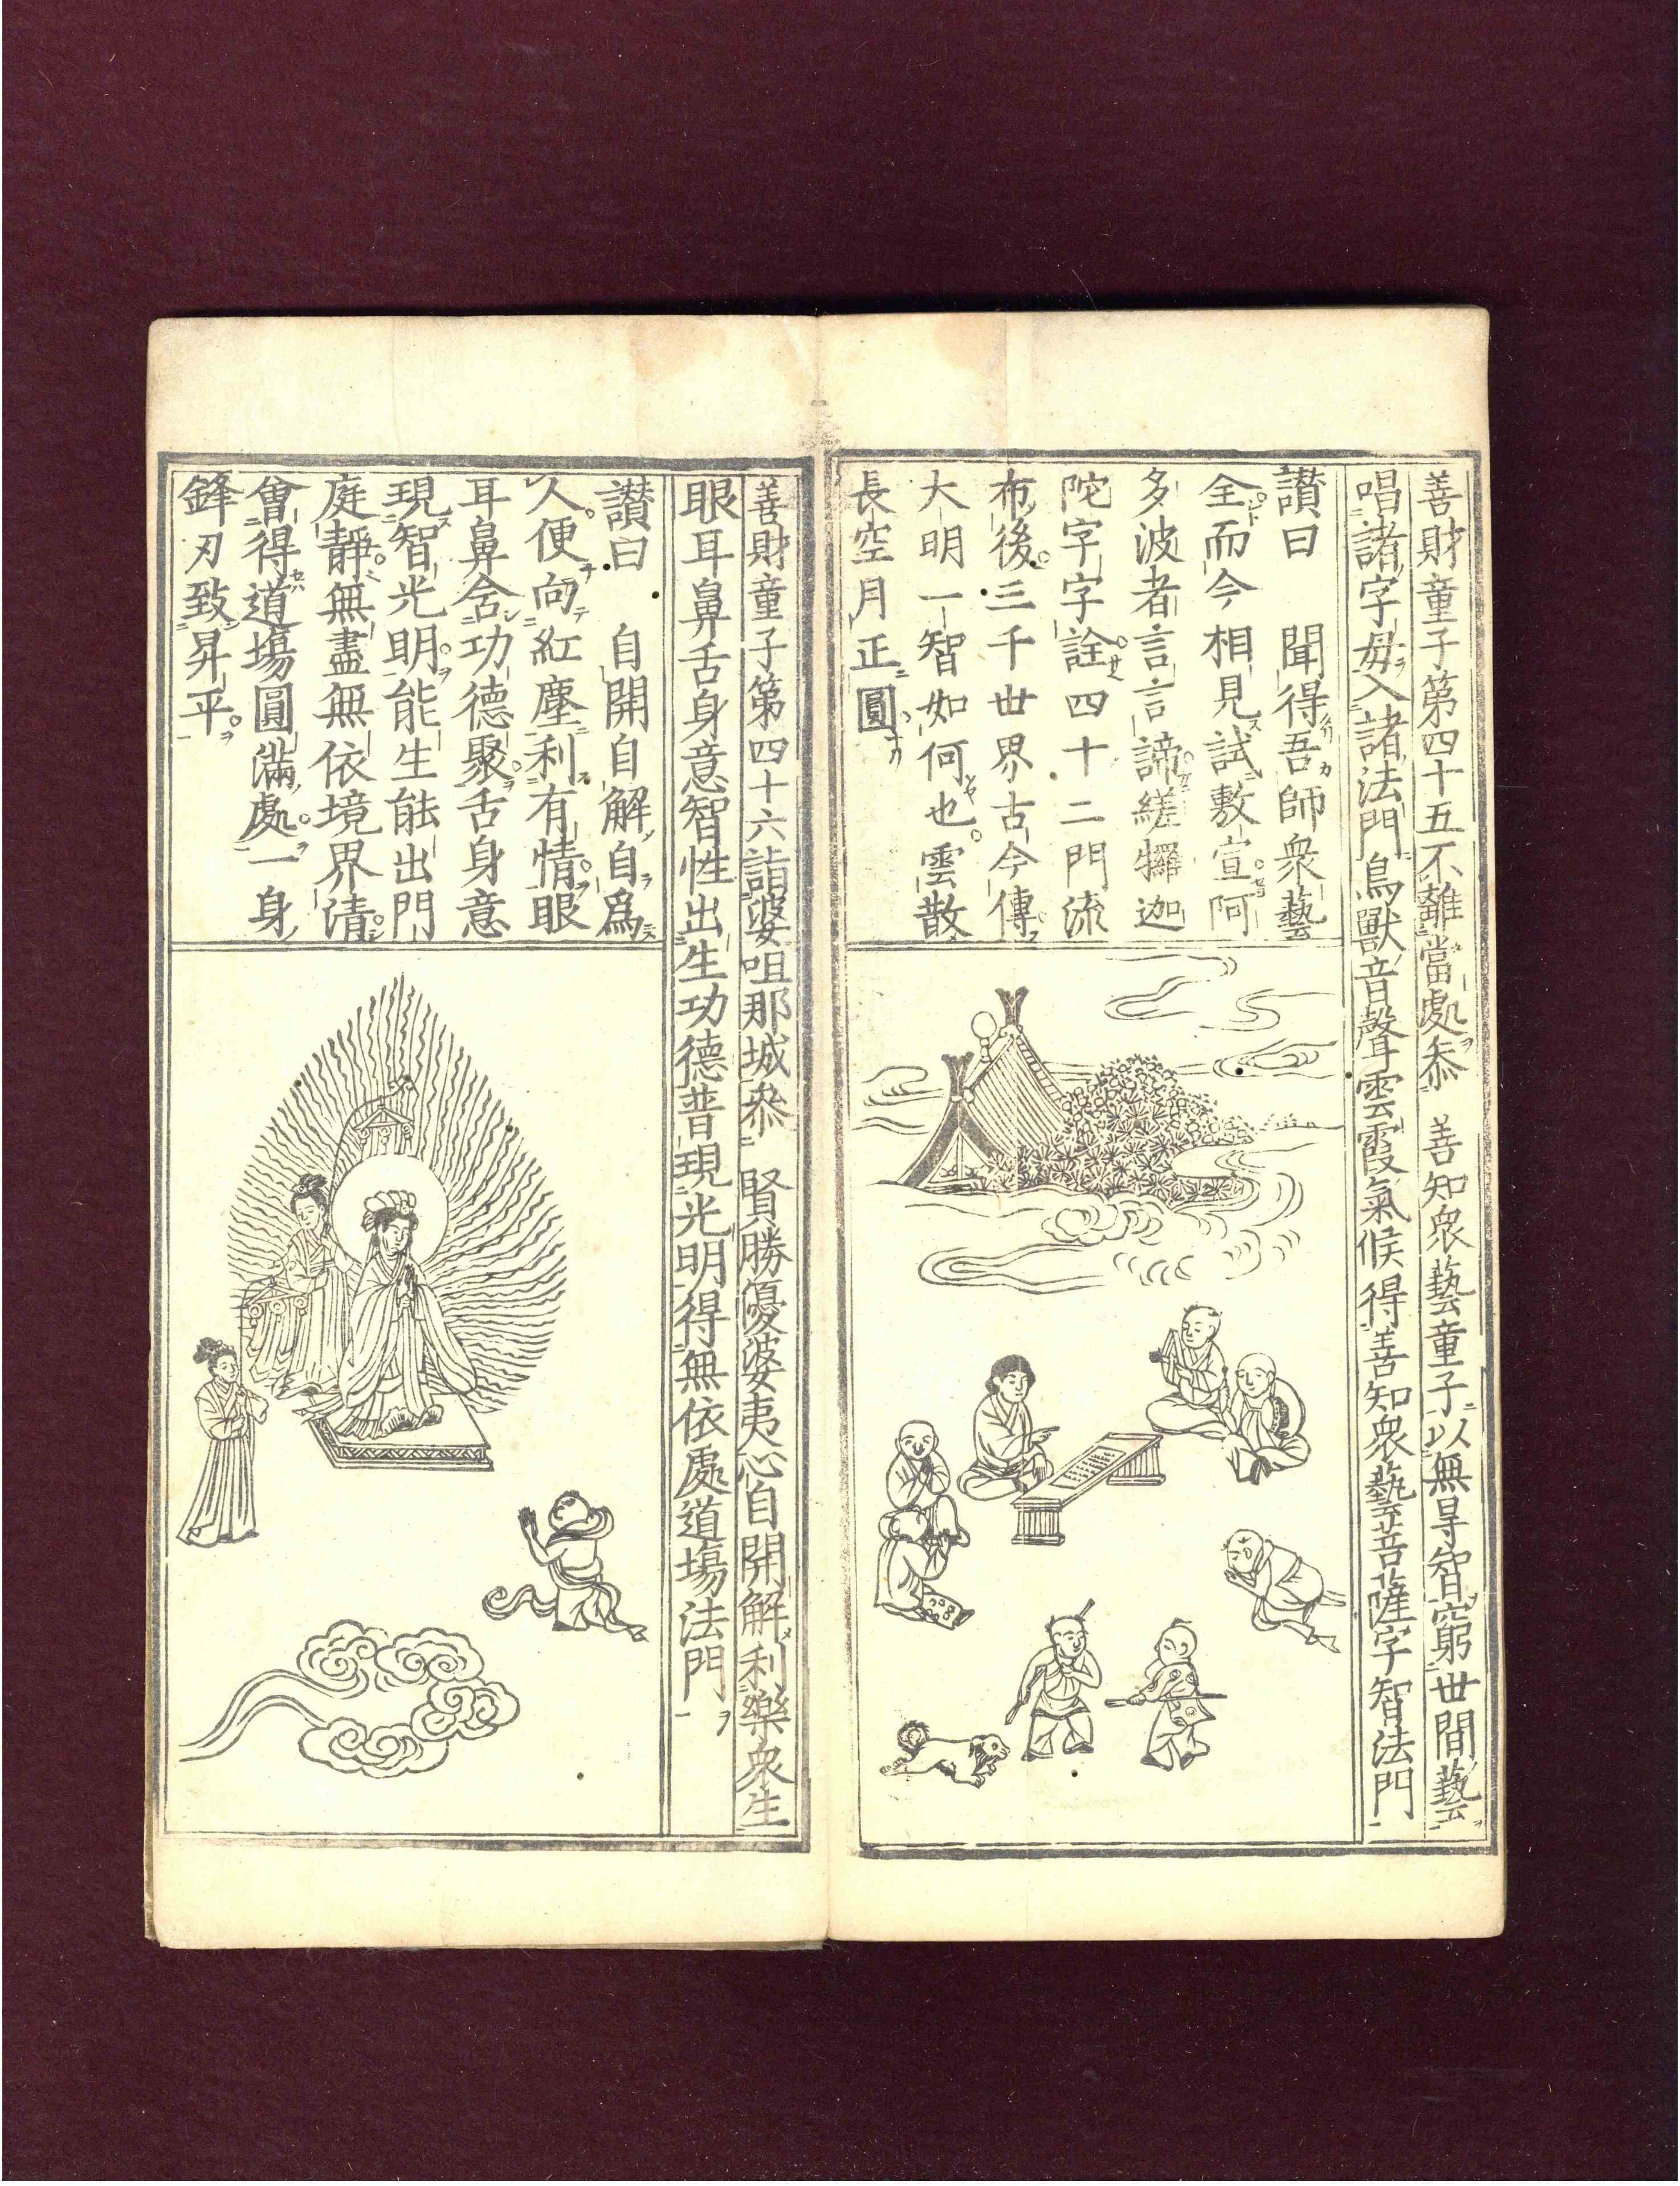 善財童子第四十五不離當處叅　善知衆藝童子以無㝵智窮世間藝
唱諸字母入諸法門鳥獸音聲雲霞氣候得善知衆藝菩薩字智法門
讃曰　聞得吾師衆藝
全而今相見試敷宣阿
多波者言言諦縒攞迦
陀字字詮四十二門流
布後三千世界古今傳
大明一智如何也雲散
長空月正圓
善財童子第四十六詣婆咀那城叅　賢勝優婆夷心自開解利樂衆生
眼耳鼻舌身意智性出生功德普現光明得無依處道場法門
讃曰　自開自解自爲
人便向紅塵利有情眼
耳鼻含功德聚舌身意
現智光明能生能出門
庭靜無盡無依境界清
會得道場圓滿處一身
鋒刃致昇平